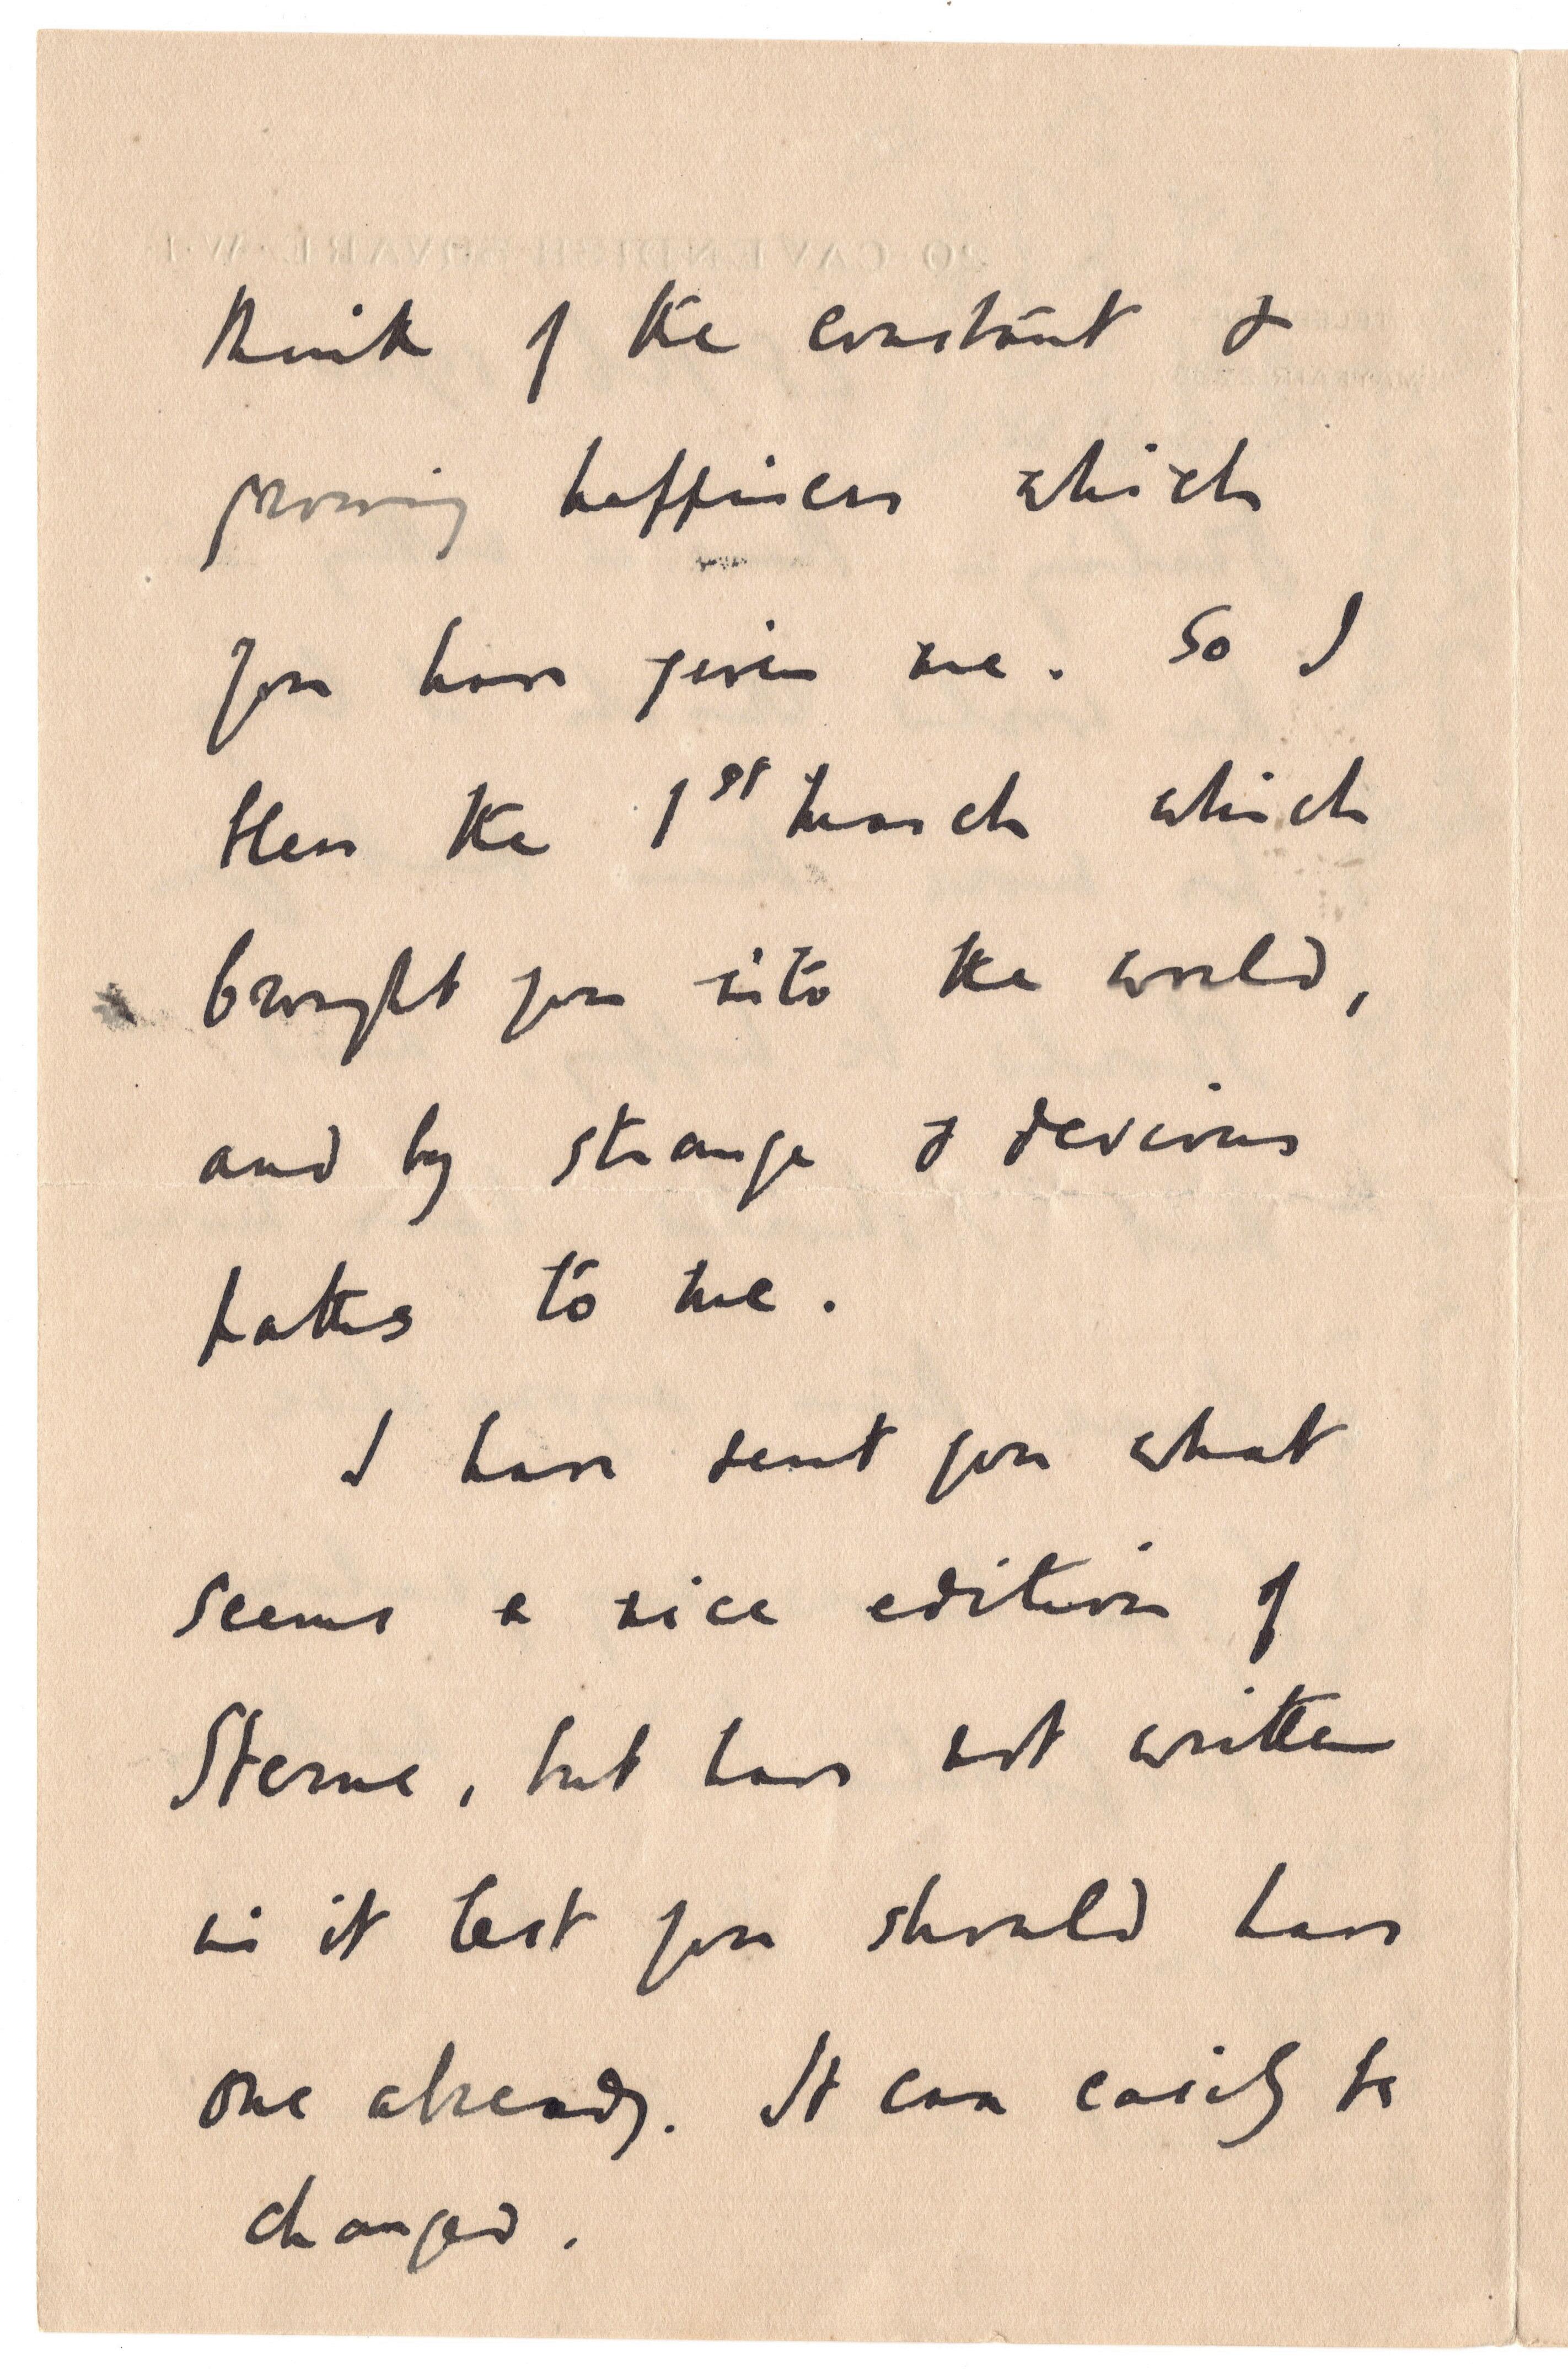 think of the constant &
growing happiness which
you have given me. So I
bless the 1st March which
brought you into the world,
and by strange & devious
paths to me.
I have sent you what
seems a nice edition of
Sterne, but have not written
in it lest you should have
one already. It can easily be
changed.